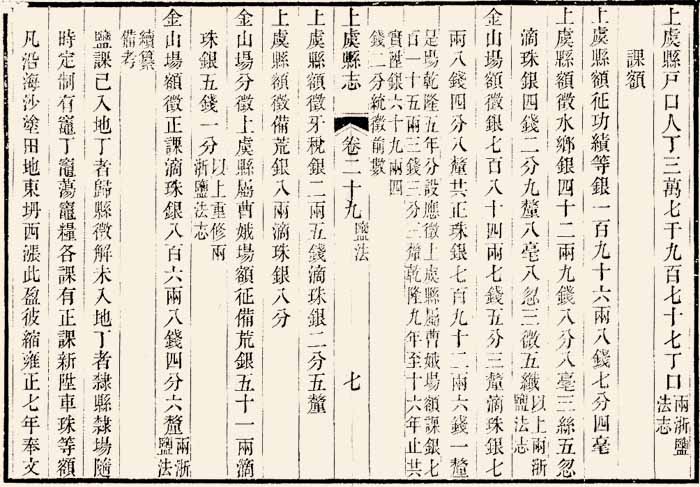 上虞縣戸口人丁三萬七千九百七十七丁口兩浙鹽法志
課額
上虞縣額征功績等銀一百九十六兩八錢七分四毫
上虞縣額徵水鄉銀四十二兩九錢八分八毫三絲五忽
滴珠銀四錢二分九釐八毫八忽三微五纖以上兩浙鹽法志
金山場額徵銀七百八十四兩七錢五分三釐滴珠銀七
兩八錢四分八釐共正珠銀七百九十二兩六錢一釐
是場乾隆五年分設應徵上虞縣屬曹娥場額課銀七
百一十五兩三錢三分三釐乾隆九年至十六年止共
實陞銀六十九兩四
錢二分統徵前數
上虞縣志
卷二十九鹽法
七
上虞縣額徵牙稅銀二兩五錢滴珠銀二分五釐
上虞縣額徵備荒銀八兩滴珠銀八分
金山場分徵上虞縣屬曹娥場額征備荒銀五十一兩滴
珠銀五錢一分以上重修兩浙鹽法志
金山場額徵正課滴珠銀八百六兩八錢四分六釐兩浙鹽法
續纂
備考
鹽課已入地丁者歸縣徵解未入地丁者隸縣隸場隨
時定制有竈丁竈蕩竈糧各課有正課新陞車珠等額
凡沿海沙塗田地東坍西漲此盈彼縮雍正七年奉文